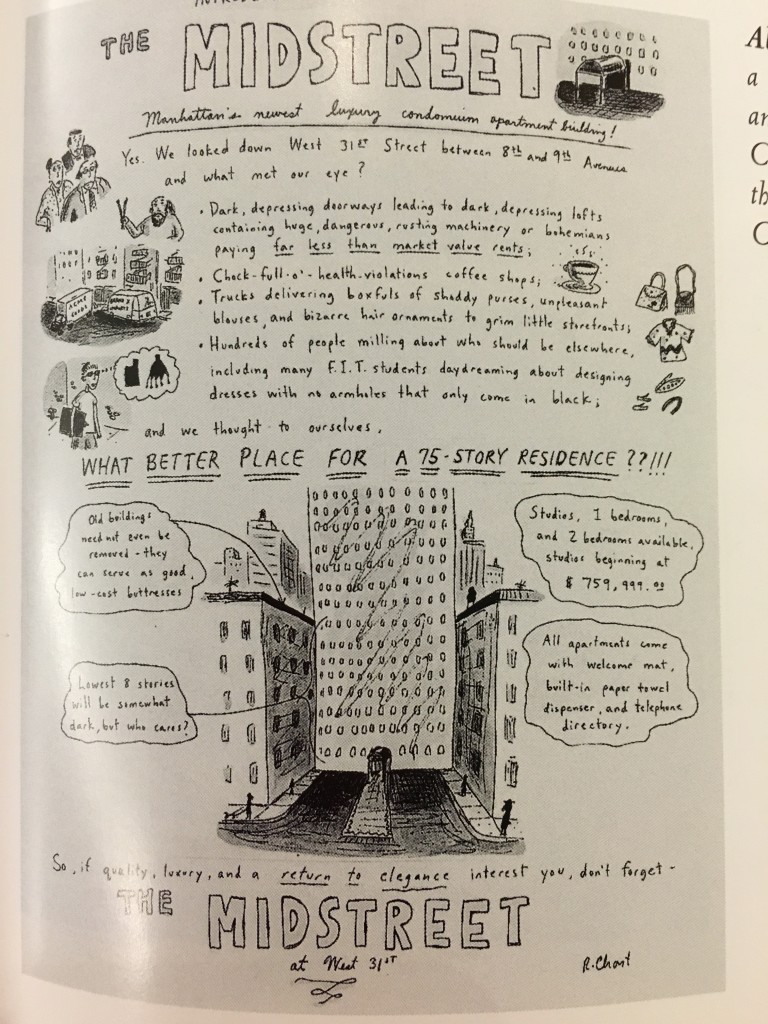 THE MIDSTREET
Manhattan's newest luxury condominium apartment building!
Yes. We looked down West 31ST Street between 8th and 9th Avenues
and what met our eye?
• Dark, depressing doorways leading to dark, depressing lofts
containing huge, dangerous, rusting machinery or bohemians
paying far less than market value rents;
• Chock-full-o'-health-violations coffee shops;
• Trucks delivering boxfuls of shoddy purses, unpleasant
blouses, and bizarre hair ornaments to grim little storefronts;
• Hundreds of people milling about who should be elsewhere,
including many F.I.T. students daydreaming about designing
dresses with no armholes that only come in black;
and we thought to ourselves,
WHAT BETTER PLACE FOR A 75-STORY RESIDENCE ??!!!
Old buildings
need not even be
removed - they
can serve as good,
low-cost buttresses
Studios, 1 bedrooms,
and 2 bedrooms available,
studios beginning at
$759,999.00
Lowest 8 stories
will be somewhat
dark, but who cares?
All apartments come
with welcome mat,
built-in paper towel
dispenser, and telephone
directory.
So, if quality, luxury, and a return to elegance interest you, don't forget -
THE
MIDSTREET
at West 31ST
R. Chast
a